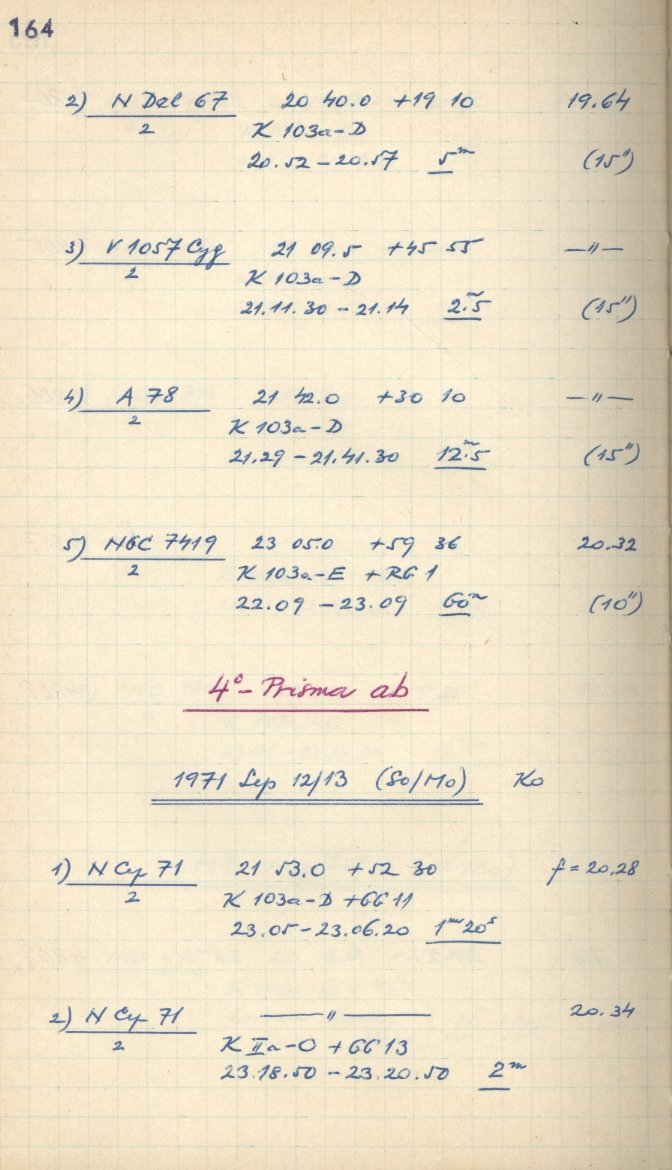 164
2) N Del 67 20 40.0 +19 10 19.64
2 K 103a-D
20.52 - 20.57 5m (15")
3) V 1057 Cyg 21 09.5 +45 55 —"—
2 K 103a-D
21.11.30 - 21.14 2m.5 (15")
4) A 78 21 42.0 +30 10 —"—
2 K 103a-D
21.29 - 21.41.30 12m.5 (15")
5) NGC 7419 23 05.0 +59 36 20.32
2 K 103a-E + RG 1
22.09 - 23.09 60m (10")
4°- Prisma ab
1971 Sep 12/13 (So/Mo) Ko
1) N Cy 71 21 53.0 +52 30 f = 20,28
2 K 103a-D + GG 11
23.05 - 23.06.20 1m 20s
2) N Cy 71 —"— 20.34
2 K IIa-O + GG 13
23.18.50 - 23.20.50 2m